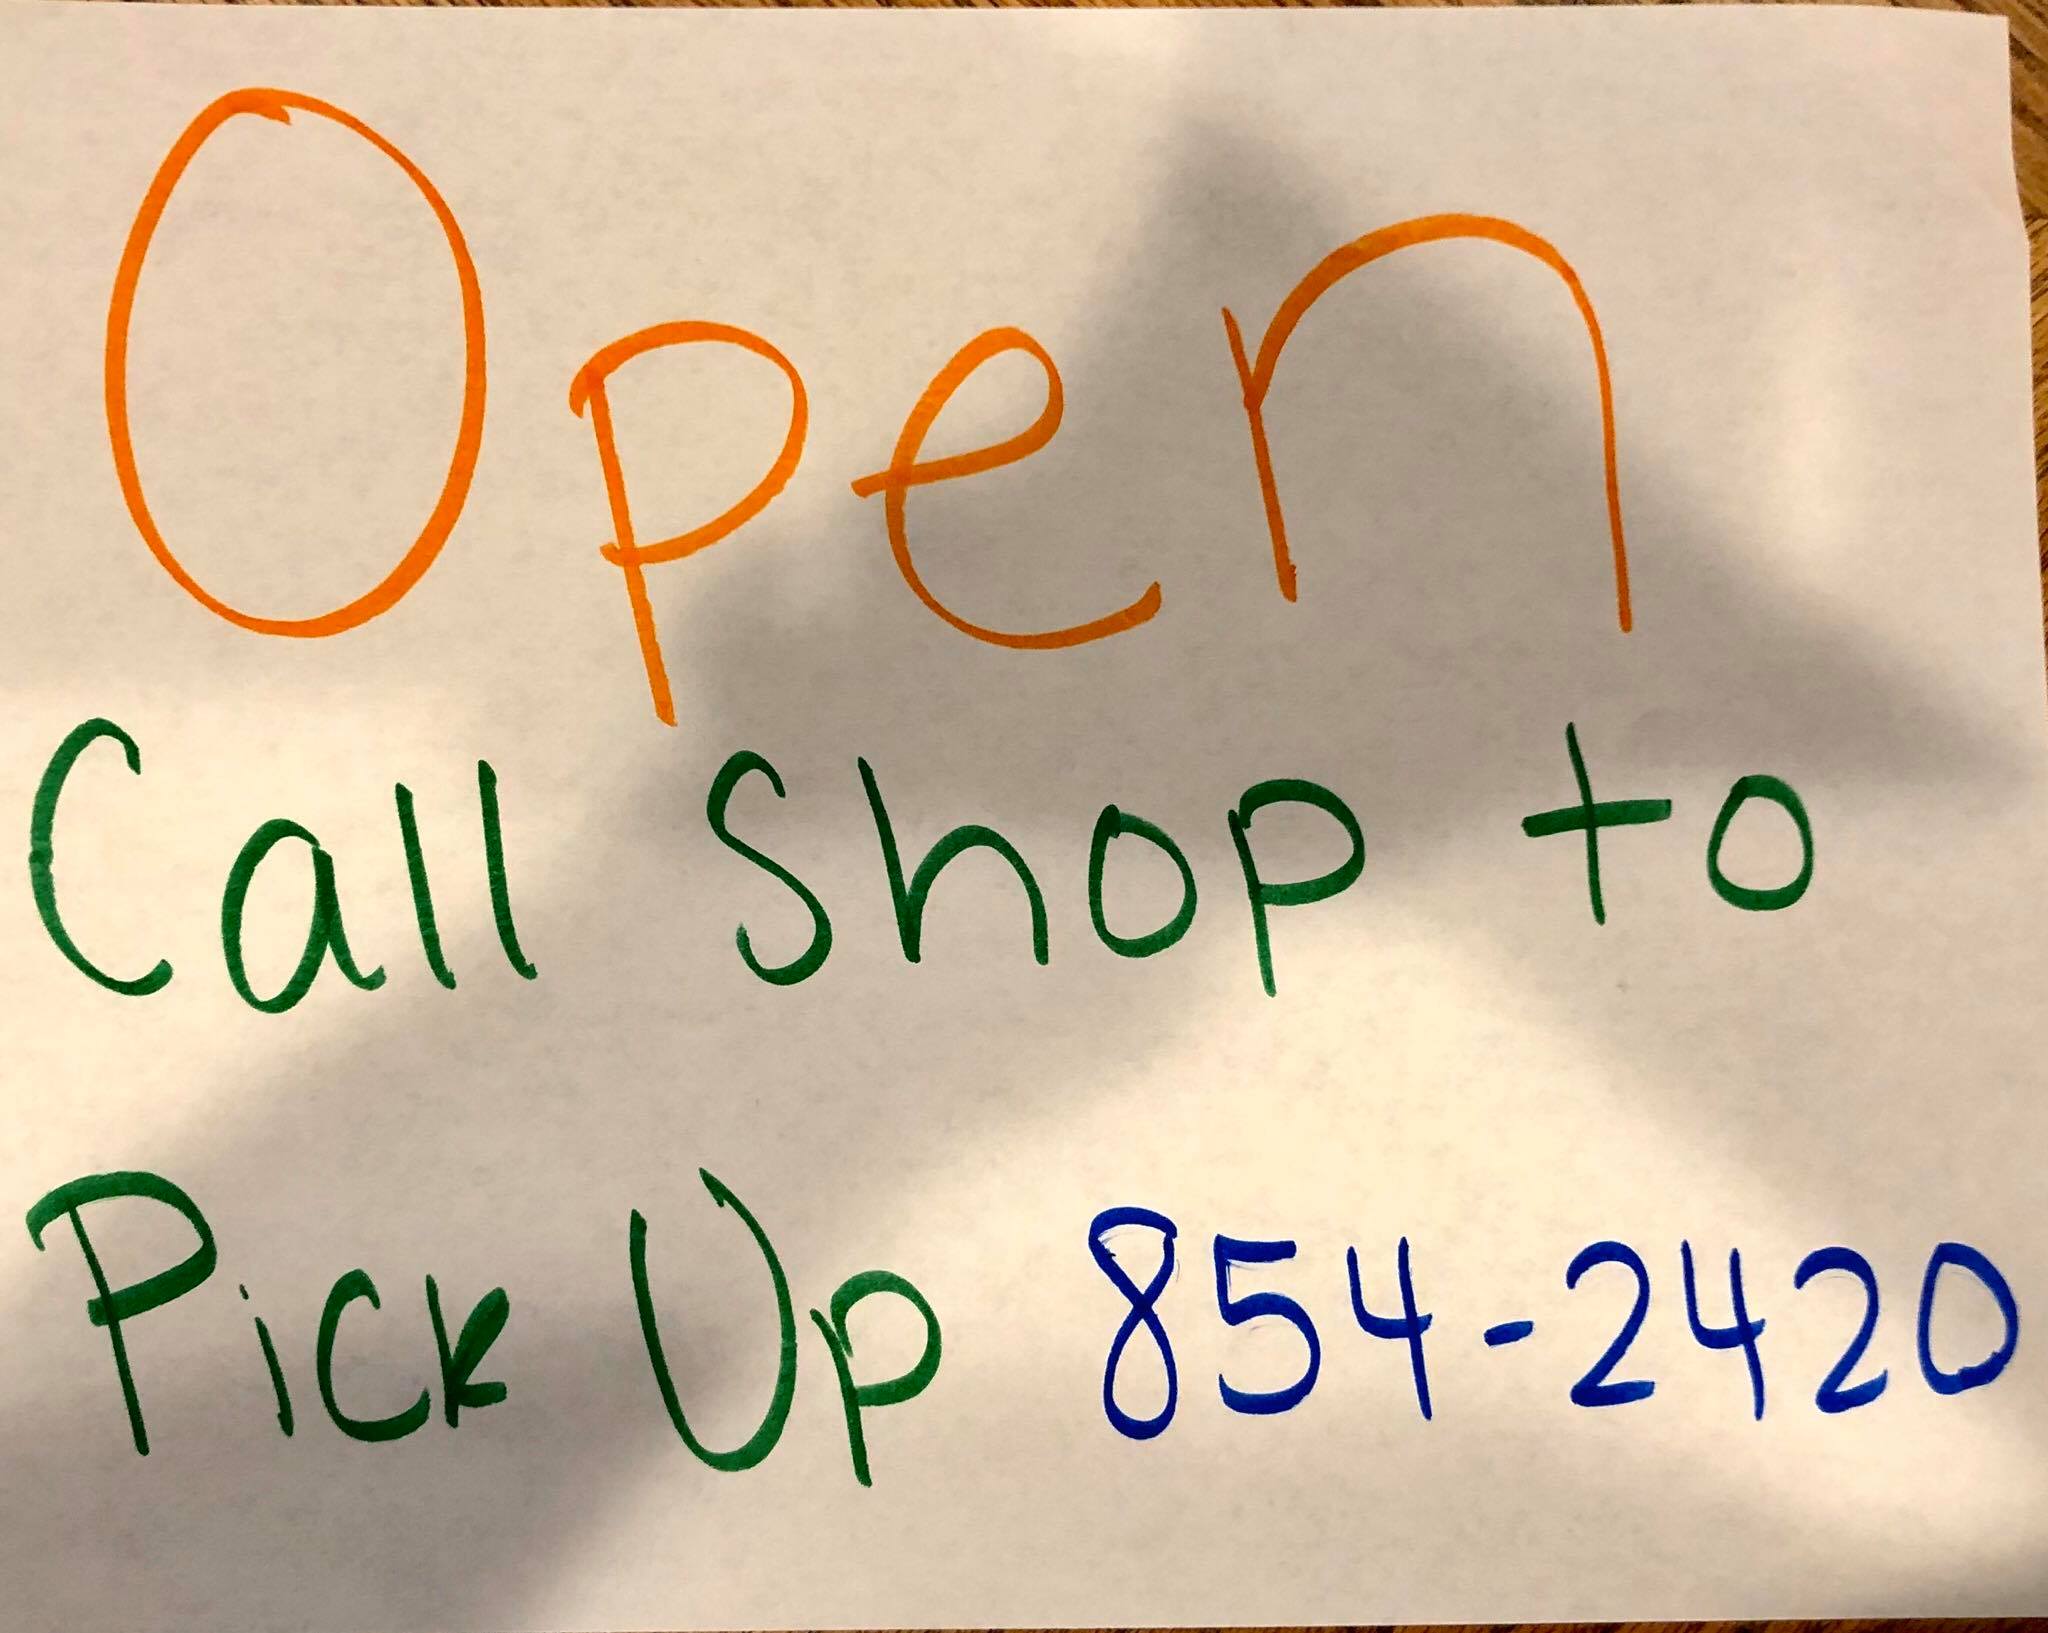 Open
Call Shop to
Pick Up 854-2420